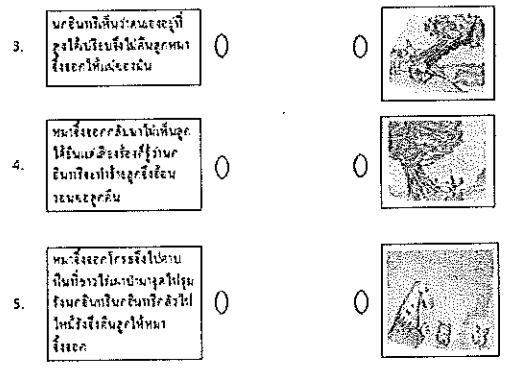 3.
นกอินทรีเห็นว่าตนเองอยู่ที่
สูงได้เปรียบจึงไม่คืนลูกหมา
จิ้งจอกให้แม่ของมัน
4.
หมาจิ้งจอกกลับมาไม่เห็นลูก
ได้ยินแต่เสียงร้องก็รู้ว่านก
อินทรีจะทำร้ายลูกจึงอ้อน
วอนขอลูกคืน
5.
หมาจิ้งจอกโกรธจึงไปคาบ
ฟืนที่ชาวไร่เผาป่ามาจุดไปสุม
รังนกอินทรีนกอินทรีกลัวไฟ
ไหม้รังจึงคืนลูกให้หมา
จิ้งจอก